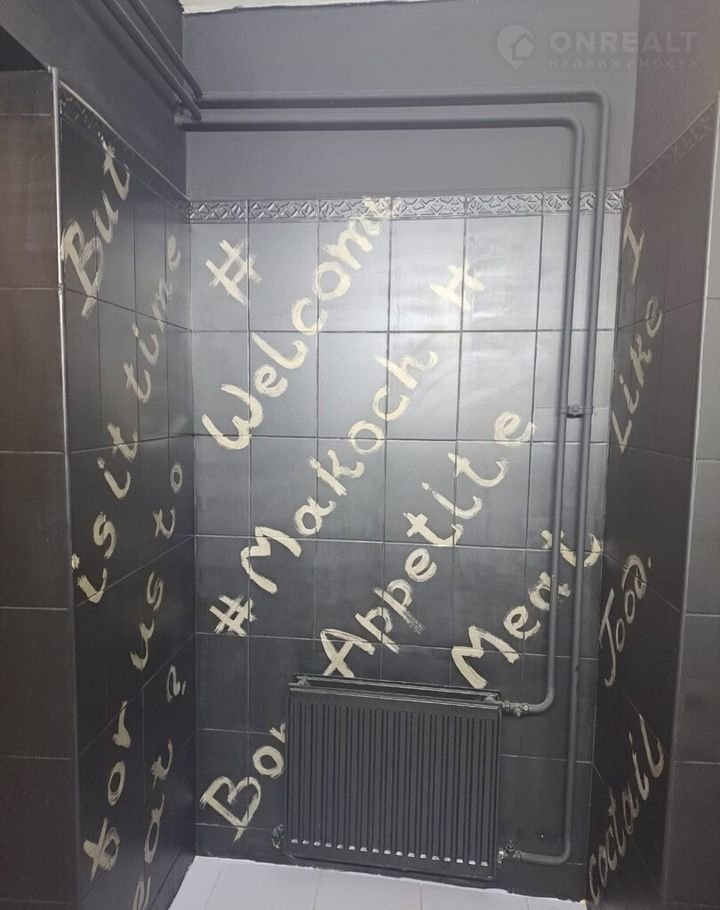 ONREALT
НЕДВИЖИМОСТЬ
But
is it time
for us to
eat ?
#
Welcome
#Makoch #
Bon Appetite
Meat
I
Like
Food.
coctail